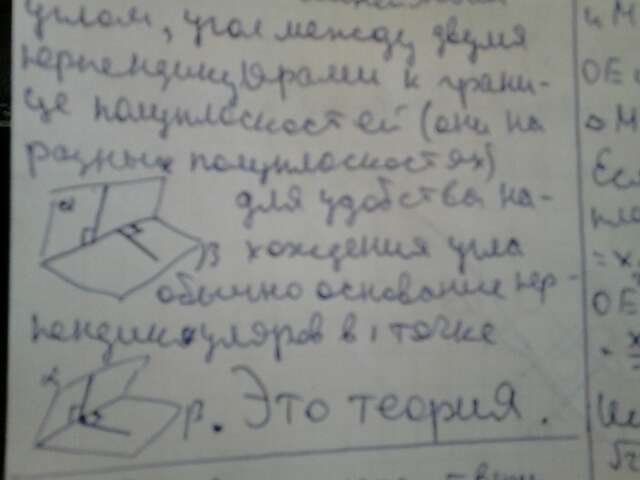 углом, угол между двумя
перпендикулярами к грани-
це полуплоскостей (они на
разных полуплоскостях)
α
для удобства на-
β хождения угла
обычно основание пер-
пендикуляров в 1 точке
α
β. Это теория.
и М
ОЕ
△М
Есл
пло
= х
ОЕ